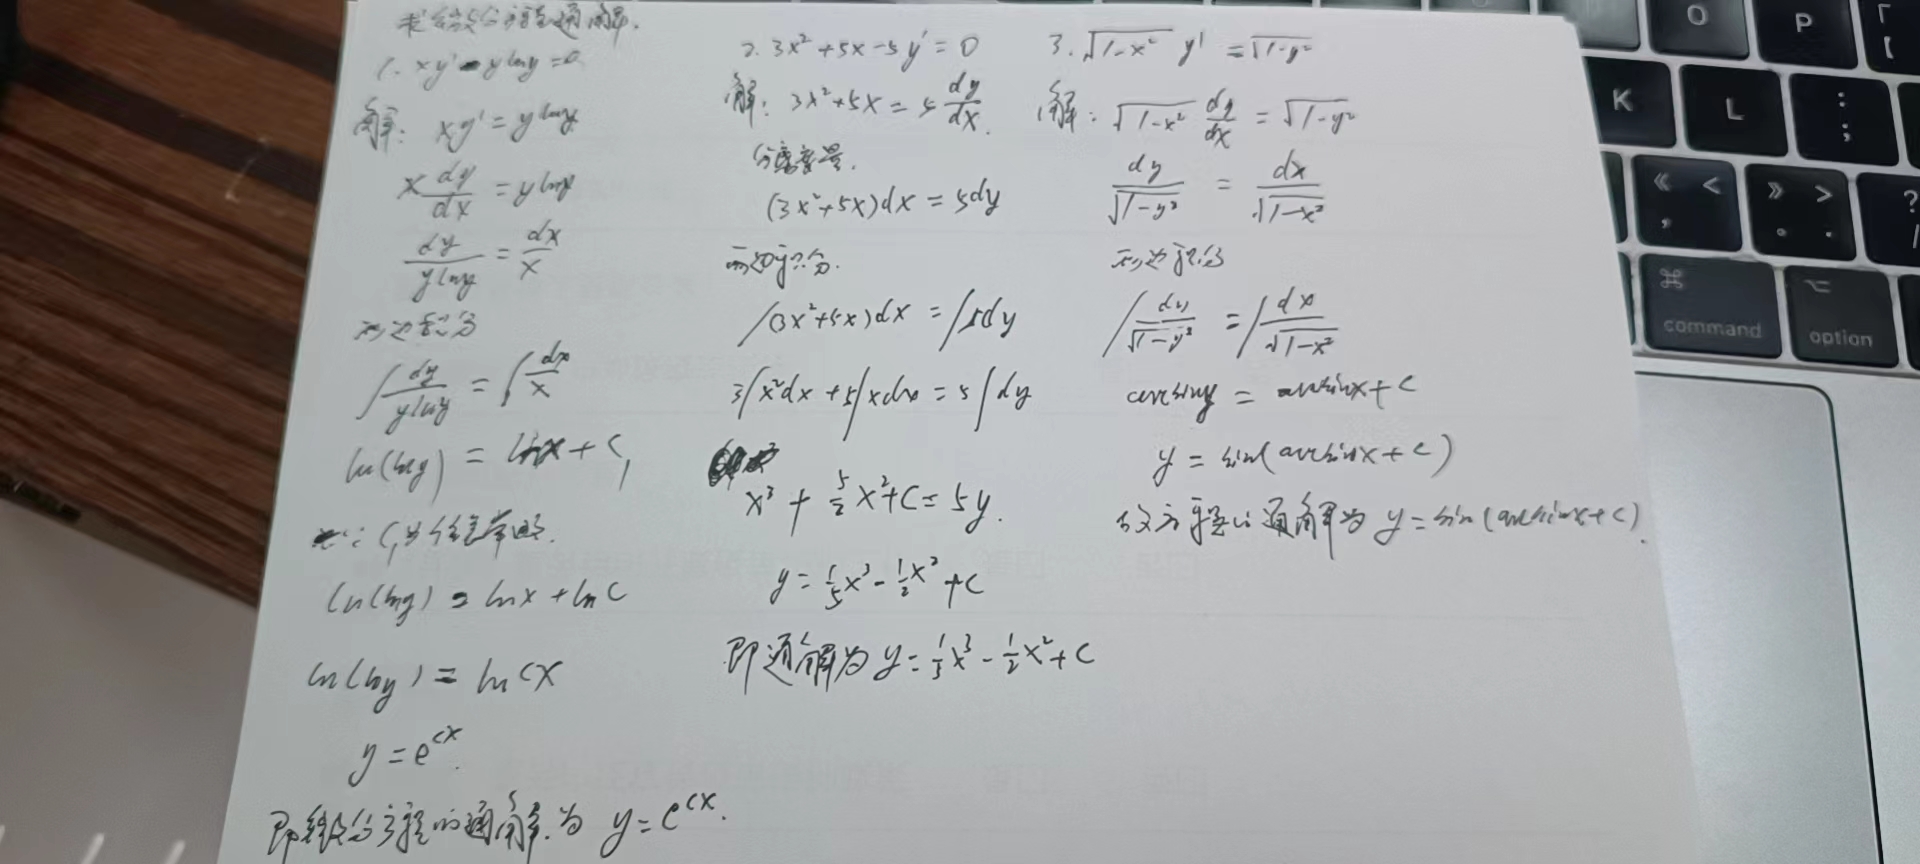 求微分方程通解.
1. xy' - y ln y = 0
解: xy' = y ln y
x dy/dx = y ln y
dy/(y ln y) = dx/x
两边积分
∫ dy/(y ln y) = ∫ dx/x
ln(ln y) = ln x + C₁
∵ C₁为任意常数.
ln(ln y) = ln x + ln C
ln(ln y) = ln Cx
y = e^{Cx}.
即微分方程的通解.为 y = e^{Cx}.
2. 3x² + 5x - 5y' = 0
解: 3x² + 5x = 5 dy/dx.
分离变量.
(3x² + 5x)dx = 5dy
两边积分.
∫(3x² + 5x)dx = ∫5dy
3∫x²dx + 5∫xdx = 5∫dy
x³ + 5/2 x² + C = 5y.
y = 1/5 x³ - 1/2 x² + C
即通解为 y = 1/5 x³ - 1/2 x² + C
3. √(1-x²) y' = √(1-y²)
解: √(1-x²) dy/dx = √(1-y²)
dy/√(1-y²) = dx/√(1-x²)
两边积分
∫ dy/√(1-y²) = ∫ dx/√(1-x²)
arcsin y = arcsin x + C
y = sin(arcsin x + C)
方程的通解为 y = sin(arcsin x + C).
O
P
K
L
:
;
«
<
,
»
>
。
.
?
/
⌘
command
⌥
option